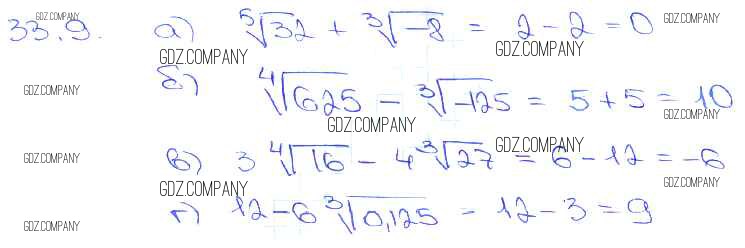 33.9. а) ⁵√32 + ³√-8 = 2 - 2 = 0
б) ⁴√625 - ³√-125 = 5 + 5 = 10
в) 3 ⁴√16 - 4 ³√27 = 6 - 12 = -6
г) 12 - 6 ³√0,125 = 12 - 3 = 9
GDZ.COMPANY
GDZ.COMPANY
GDZ.COMPANY
GDZ.COMPANY
GDZ.COMPANY
GDZ.COMPANY
GDZ.COMPANY
GDZ.COMPANY
GDZ.COMPANY
GDZ.COMPANY
GDZ.COMPANY
GDZ.COMPANY